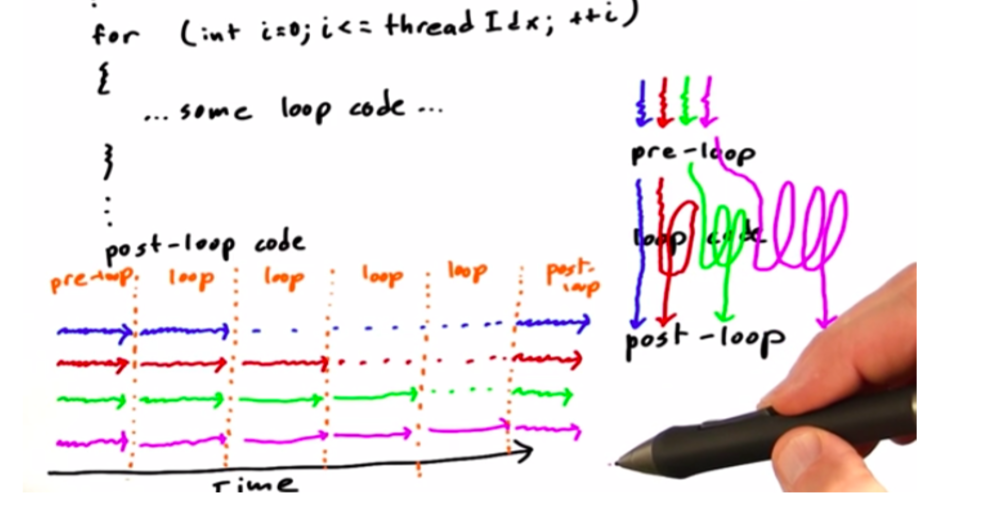 for (int i=0; i<= threadIdx; ++i)
{
... some loop code ...
}
post-loop code
pre-loop loop loop loop loop post-loop
Time
pre-loop
loop code
post-loop